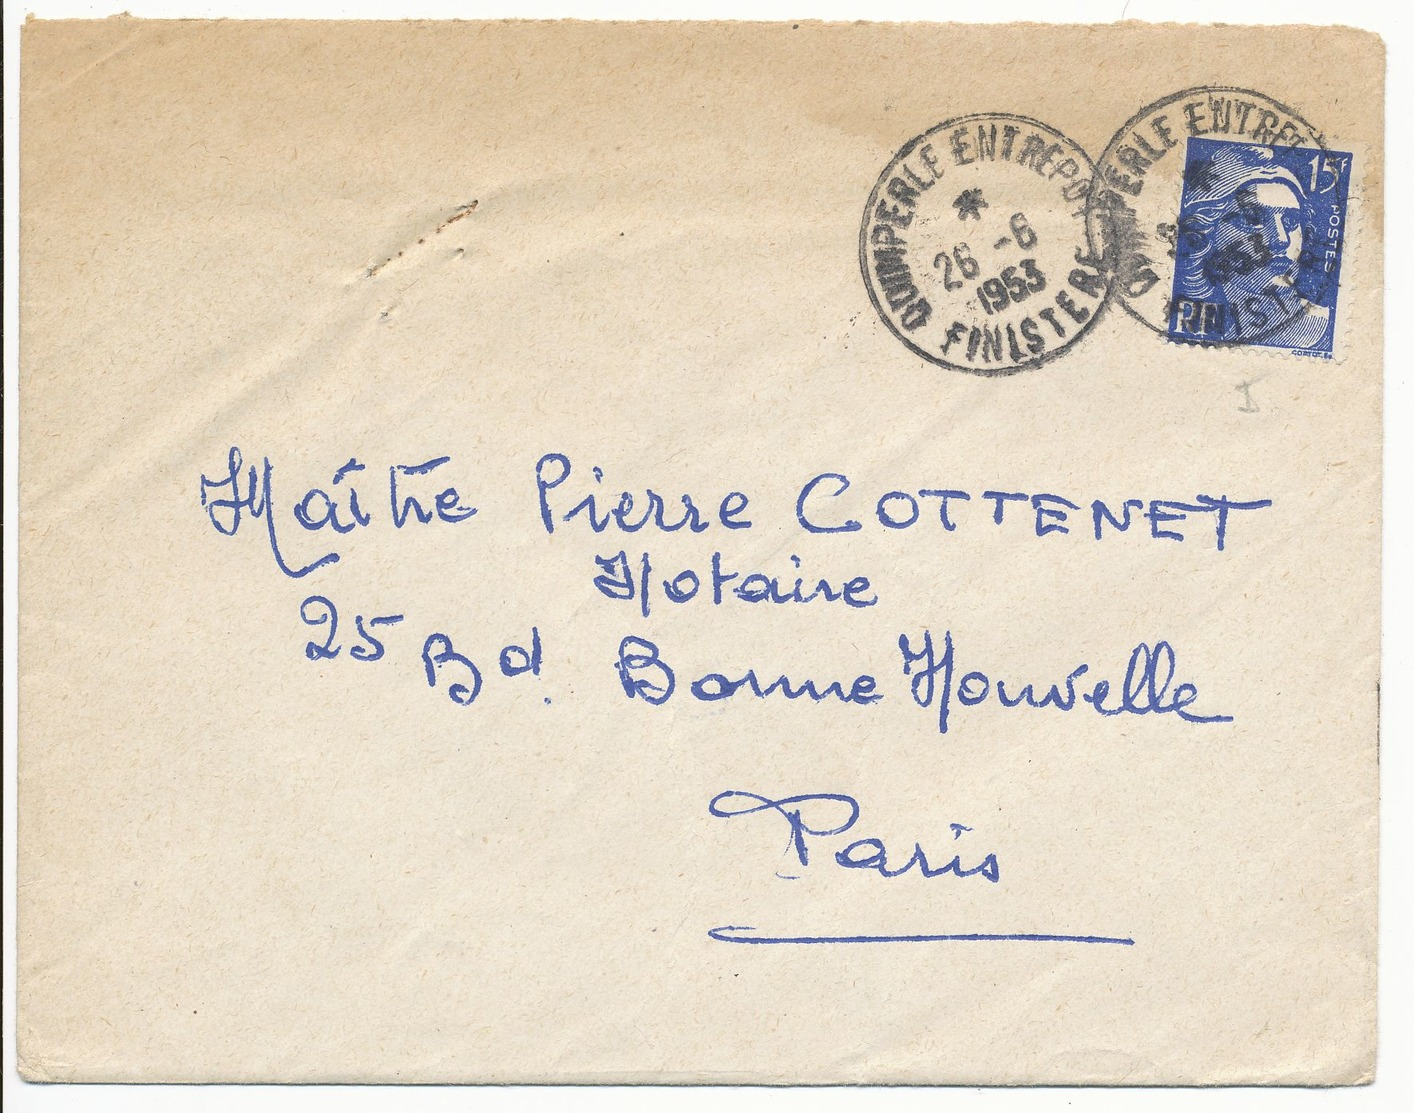 QUIMPERLE ENTREPOT
*
26 -6
1953
FINISTERE
PERLE ENTRE
*
-6
1953
FINISTERE
15F
POSTES
RF
Maître Pierre COTTENET
Notaire
25 Bd. Bonne Nouvelle
Paris